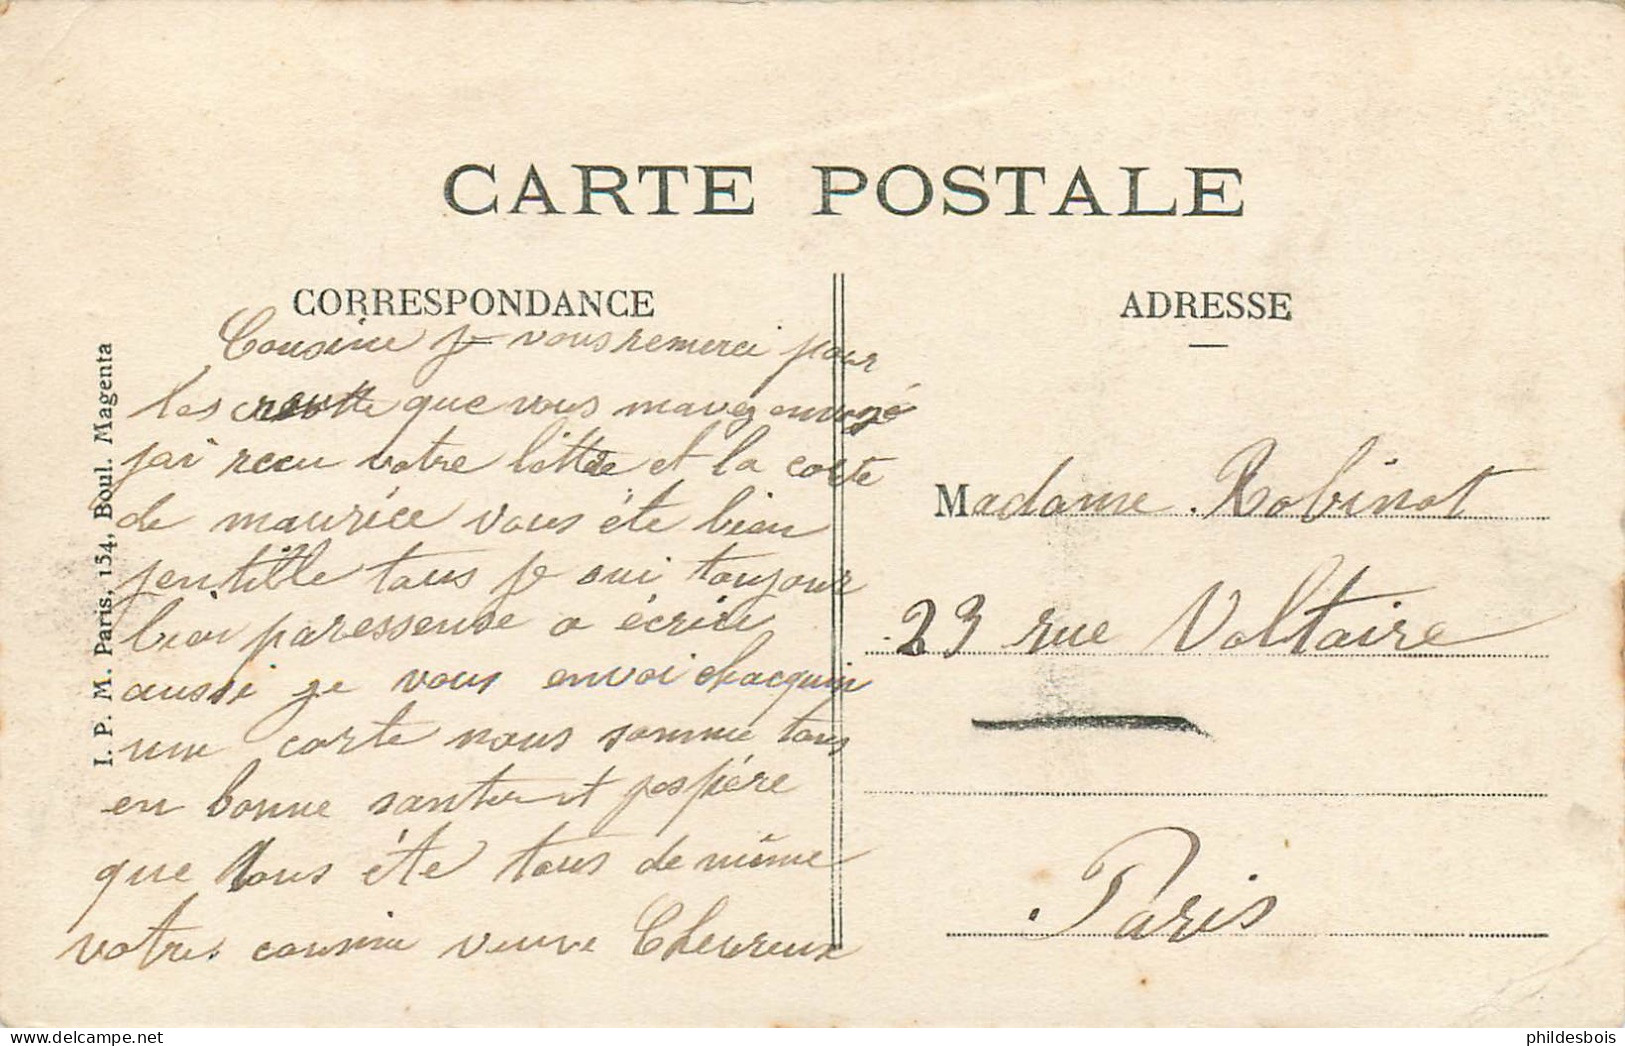 CARTE POSTALE
CORRESPONDANCE
Cousine je vous remerci pour
les que vous mavez envoyé
jai recu votre lettre et la carte
de maurice vous éte bien
jentille tous je sui toujour
bien paresseuse a écrire
aussi je vous envoi chacquin
une carte nous somme tous
en bonne santer et jespére
que vous éte tous de même
votres cousine veuve Cheureux
ADRESSE
Madame Robinot
23 rue Voltaire
Paris
I. P. M. Paris, 154, Boul. Magenta
phildesbois